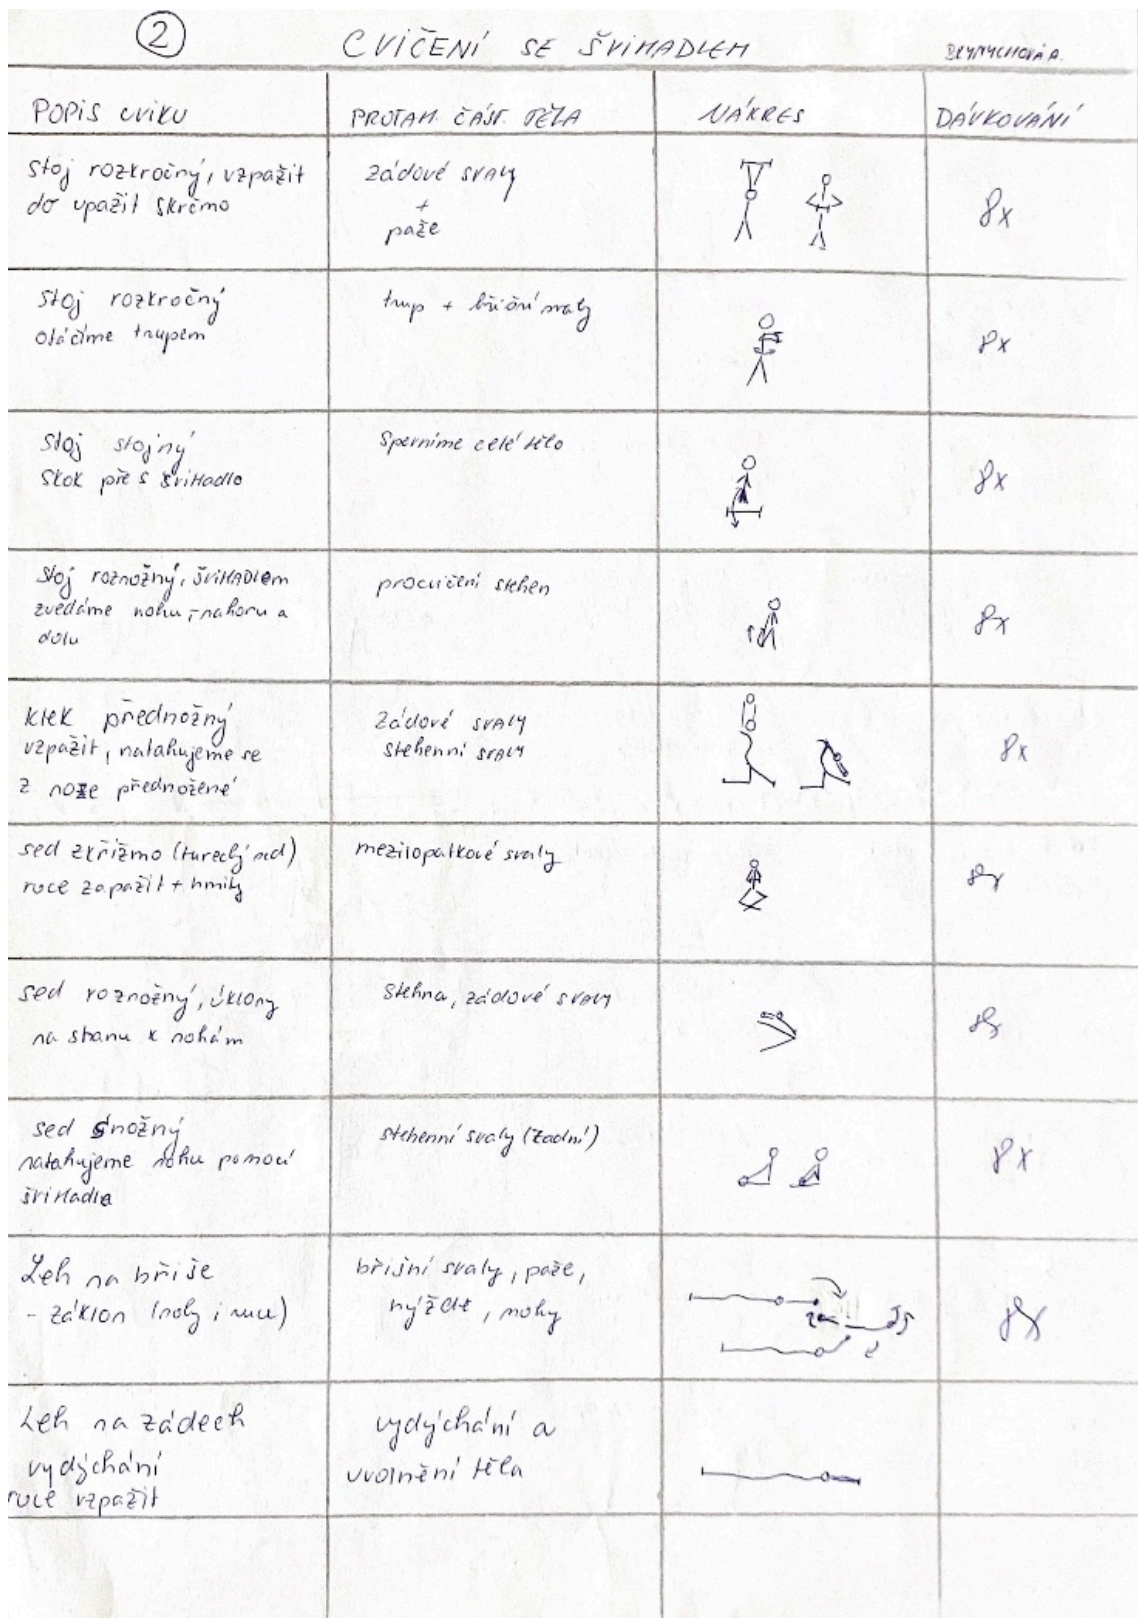 2
CVIČENÍ SE ŠVIHADLEM
POPIS CVIKU
PROTAH. ČÁST TĚLA
NÁKRES
DÁVKOVÁNÍ
stoj rozkročný, vzpažit
do upažit skrčmo
zádové svaly
+
paže
8x
stoj rozkročný
otáčíme trupem
trup + břišní svaly
8x
stoj stojný
skok přes švihadlo
Sperníme celé tělo
8x
stoj roznožný, švihadlem
zvedáme nohu, nahoru a
dolu
procvičení stehen
8x
klek přednožný
vzpažit, natahujeme se
z noze přednožené
zádové svaly
stehenní svaly
8x
sed zkřižmo (turecký sed)
ruce zapažit + hmity
mezilopatkové svaly
8x
sed roznožný, úklony
na stranu k nohám
stehna, zádové svaly
8x
sed snožný
natahujeme nohu pomocí
švihadla
stehenní svaly (zadní)
8x
Leh na břiše
- záklon (nohy i ruce)
břišní svaly, paže,
hýždě, nohy
8x
Leh na zádech
vydýchání
ruce vzpažit
vydýchání a
uvolnění těla